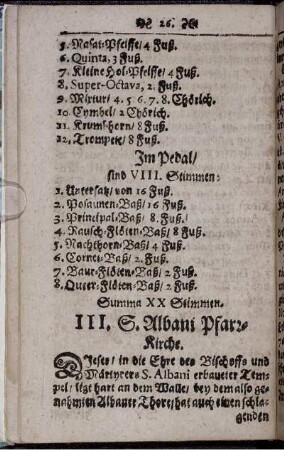 26.
5. Nasat-Pfeiffe/ 4 Fuß.
6. Quinta, 3 Fuß.
7. Kleine Hol-Pfeiffe/ 4 Fuß.
8. Super-Octava, 2. Fuß.
9. Mixtur/ 4. 5 6. 7. 8. Chörich.
10. Cymbel/ 2 Chörich.
11. Krumbhorn/ 8 Fuß.
12. Trompete/ 8 Fuß.
Im Pedal/
sind VIII. Stimmen:
1. Untersatz/ von 16 Fuß.
2. Posaunen-Baß/ 16 Fuß.
3. Principal-Baß/ 8. Fuß.
4. Rausch-Flöten-Baß/ 8 Fuß.
5. Nachthorn-Baß/ 4 Fuß.
6. Cornet-Baß/ 2. Fuß.
7. Baur-Flöten-Baß/ 2. Fuß.
8. Queer-Flöten-Baß/ 2 Fuß.
Summa XX Stimmen.
III. S. Albani Pfarr-
Kirche.
Dieses/ in die Ehre des Bischoffs und
Märtyrers S. Albani erbaueter Tem-
pel/ ligt hart an dem Walle/ bey dem also ge-
nahmten Albaner Thore/ hat auch einen schla-
genden